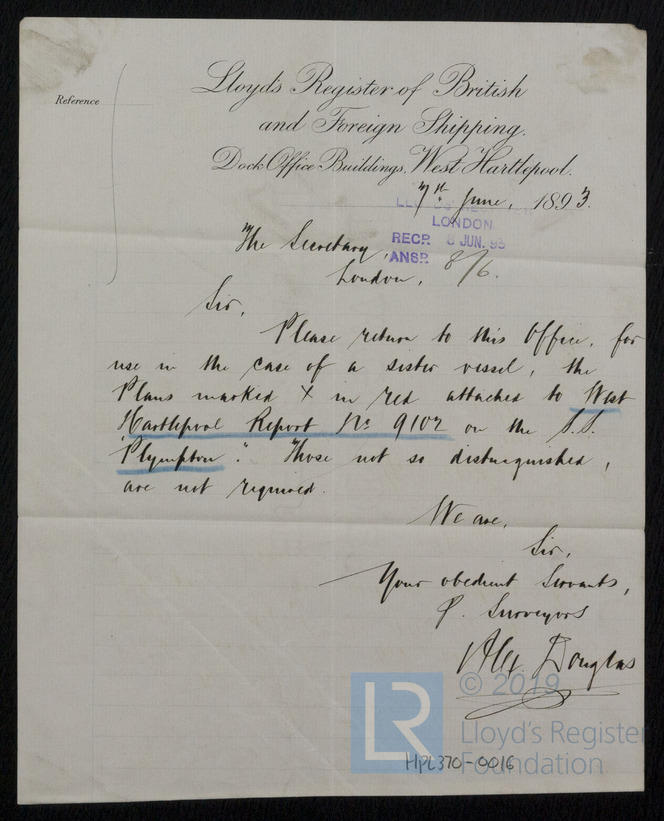 Lloyd's Register of British
and Foreign Shipping.
Reference
Dock Office Buildings, West Hartlepool.
7th June, 1893.
LONDON
RECD 8 JUN. 93
ANSD 8/6.
The Secretary,
London.
Sir,
Please return to this Office, for
use in the case of a sister vessel, the
Plans marked X in red attached to West
Hartlepool Report No 9102 on the S.S.
"Plympton". Those not so distinguished,
are not required.
We are,
Sir,
Your obedient Servants,
P. Surveyors
Alex. Douglas
LR
© 2019
Lloyd's Register
Foundation
HPL370-0016